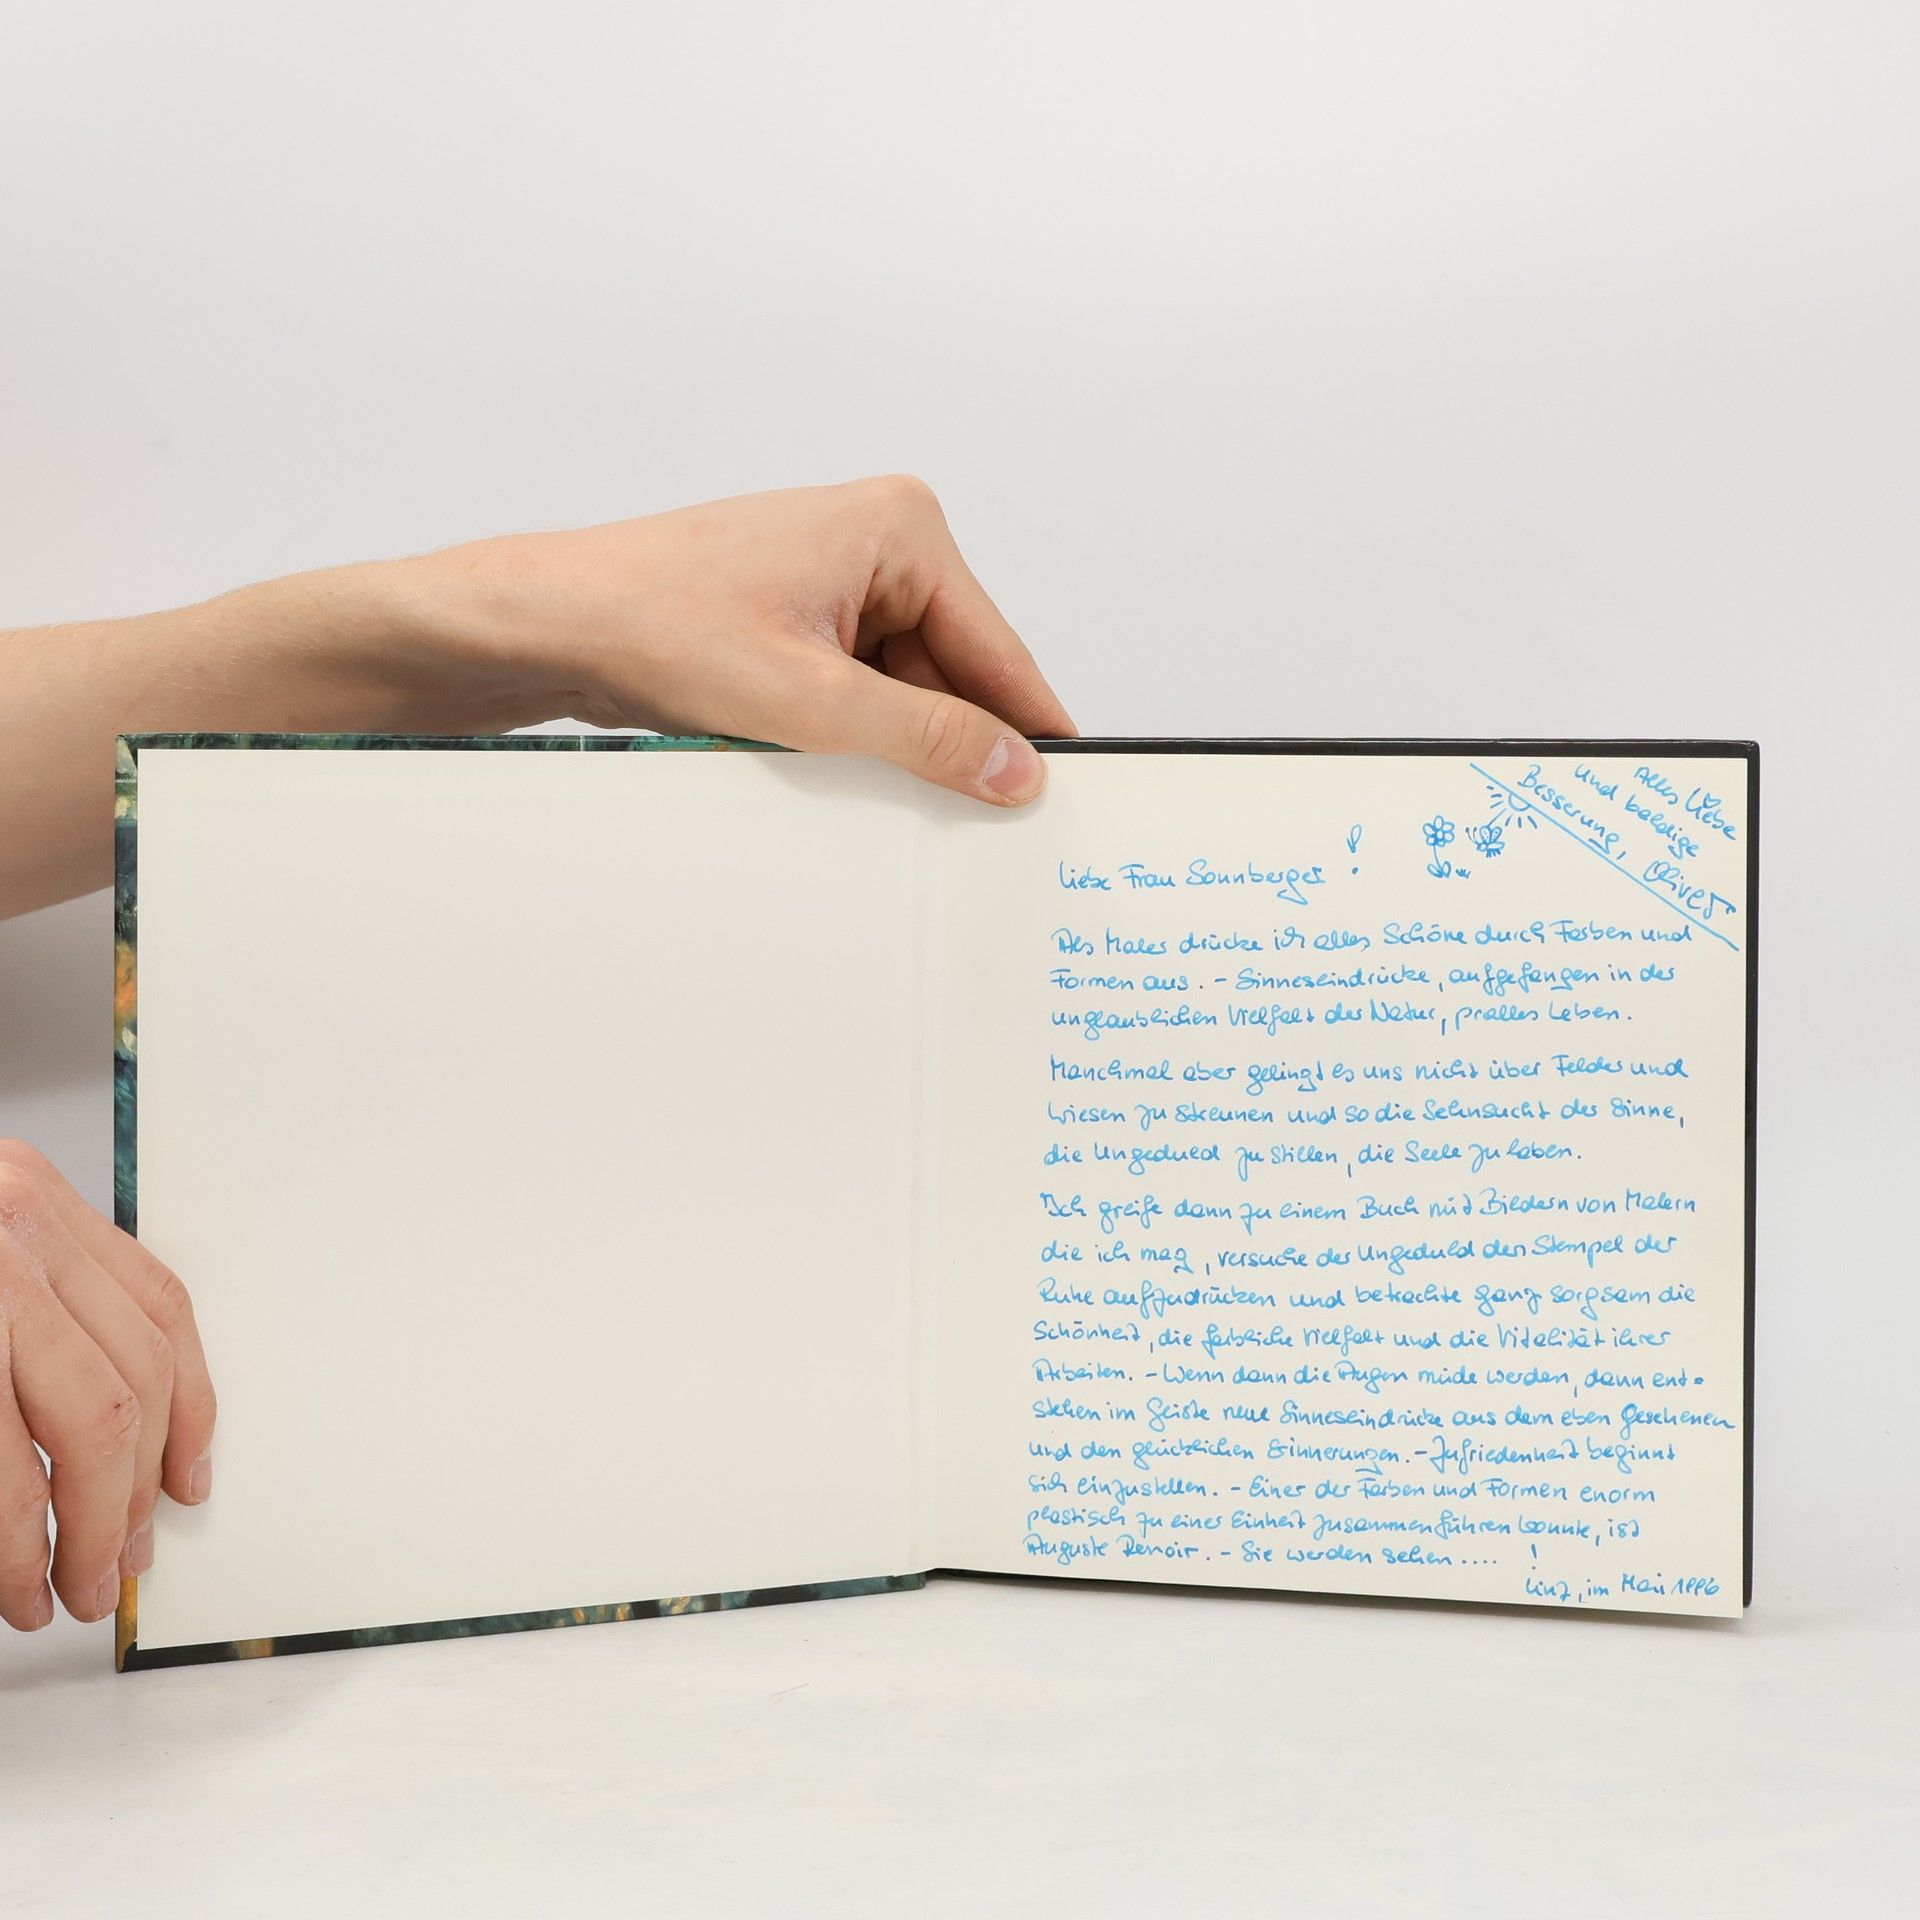 Alles Liebe
und baldige
Besserung,
Oliver
Liebe Frau Sonnberger!
Als Maler drücke ich alles Schöne durch Farben und
Formen aus. – Sinneseindrücke, aufgefangen in der
unglaublichen Vielfalt der Natur, pralles Leben.
Manchmal aber gelingt es uns nicht über Felder und
Wiesen zu streunen und so die Sehnsucht der Sinne,
die Ungeduld zu stillen, die Seele zu laben.
Ich greife dann zu einem Buch mit Bildern von Malern
die ich mag, versuche der Ungeduld den Stempel der
Ruhe aufzudrücken und betrachte ganz sorgsam die
Schönheit, die farbliche Vielfalt und die Vitalität ihrer
Arbeiten. – Wenn dann die Augen müde werden, dann ent=
stehen im Geiste neue Sinneseindrücke aus dem eben Gesehenen
und den glücklichen Erinnerungen. – Zufriedenheit beginnt
sich einzustellen. – Einer der Farben und Formen enorm
plastisch zu einer Einheit zusammenführen konnte, ist
Auguste Renoir. – Sie werden sehen .... !
Linz, im Mai 1996